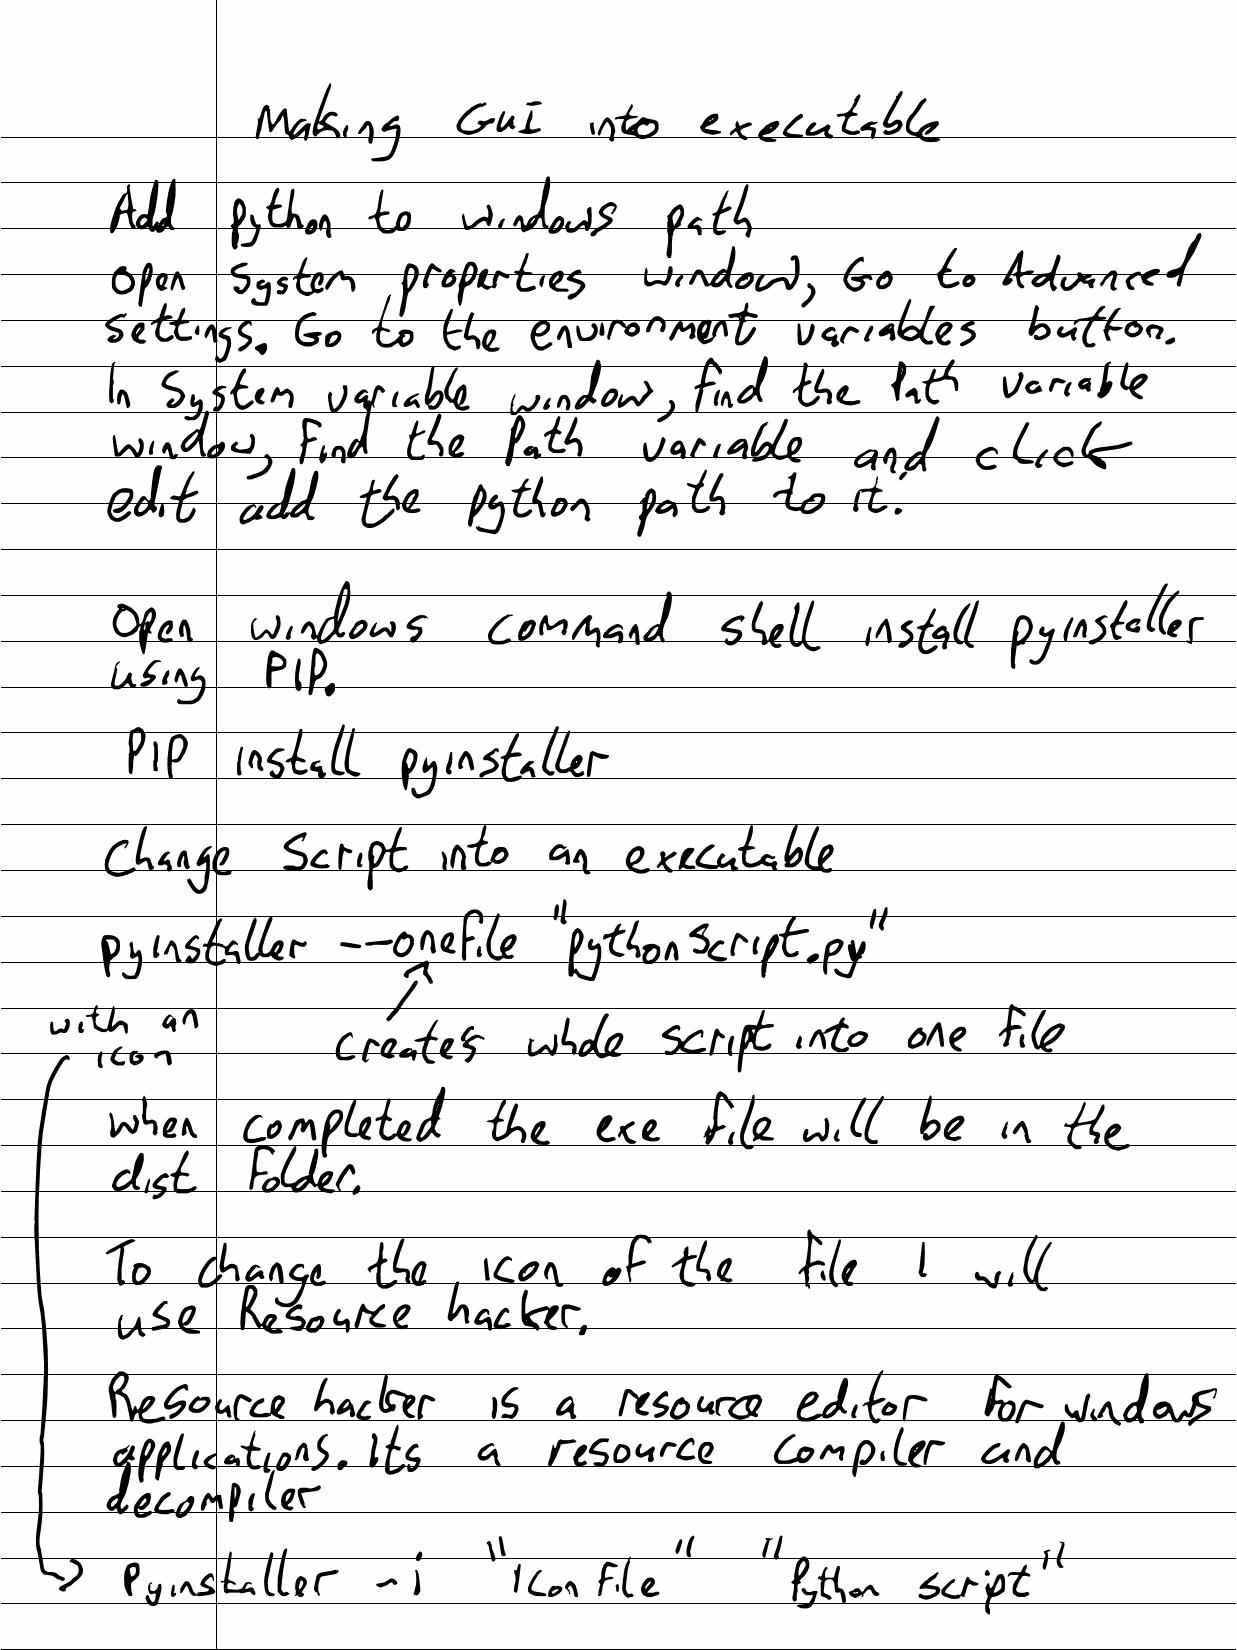 Making GUI into executable
Add python to windows path
Open System properties window, Go to Advanced
settings. Go to the environment variables button.
In System variable window, find the Path variable
window, Find the Path variable and click
edit add the python path to it.
Open windows command shell install pyinstaller
using PIP.
PIP install pyinstaller
Change Script into an executable
pyinstaller --onefile "pythonScript.py"
with an
icon
creates whole script into one file
when completed the exe file will be in the
dist folder.
To change the icon of the file I will
use Resource hacker.
Resource hacker is a resource editor for windows
applications. Its a resource compiler and
decompiler
Pyinstaller -i "Icon file" "Python script"